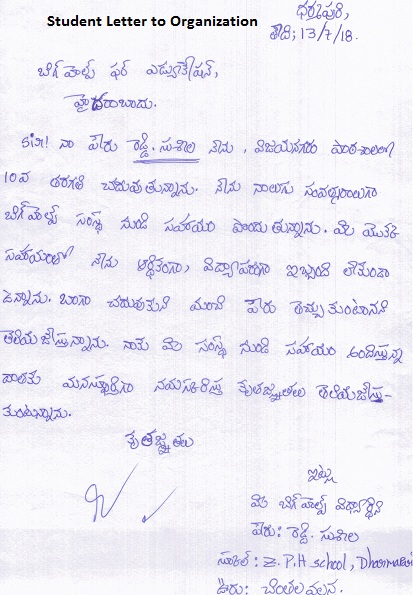 Student Letter to Organization
ధర్మపురి,
తేది; 13/7/18.
బిగ్ హెల్ప్ ఫర్ ఎడ్యుకేషన్,
హైదరాబాదు.
Sir! నా పేరు రెడ్డి. సుశీల నేను, విజయనగరం పాఠశాలలో
10వ తరగతి చదువుతున్నాను. నేను నాలుగు సంవత్సరాలుగా
బిగ్ హెల్ప్ సంస్థ నుండి సహాయం పొందుతున్నాను. మీ యొక్క
సహాయంతో నేను ఆర్థికంగా, విద్యాపరంగా ఇబ్బంది లేకుండా
ఉన్నాను. బాగా చదువుకుని మంచి పేరు తెచ్చుకుంటానని
తెలియజేస్తున్నాను. నాకు మీ సంస్థ నుండి సహాయం అందిస్తున్న
దాతకు మనస్ఫూర్తిగా నమస్కరిస్తూ కృతజ్ఞతలు తెలియజేస్తు-
కుంటున్నాను.
కృతజ్ఞతలు
ఇట్లు
మీ బిగ్ హెల్ప్ విద్యార్థిని
పేరు: రెడ్డి. సుశీల
స్కూల్: Z.P.H school, Dharmapuri
ఊరు: చింతలవలస.